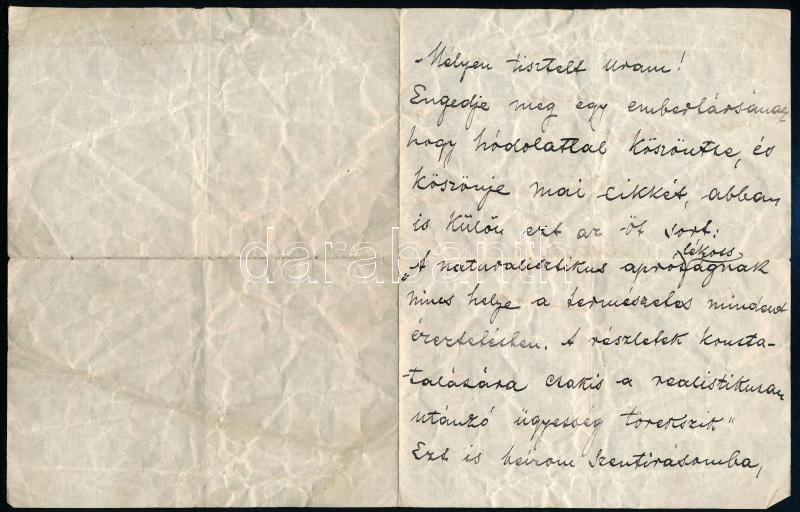 Mélyen tisztelt Uram!
Engedje meg egy embertársának
hogy hódolattal köszöntse, és
köszönje mai cikkét, abban
is külön ezt az öt sort:
lékoss
„A naturalisztikus apróságnak
nincs helye a természetes mindent
éreztetésben. A részletek konsta-
tálására csakis a realistikusan
utánzó ügyesség törekszik"
Ezt is beírom Szentírásomba,
darabanth